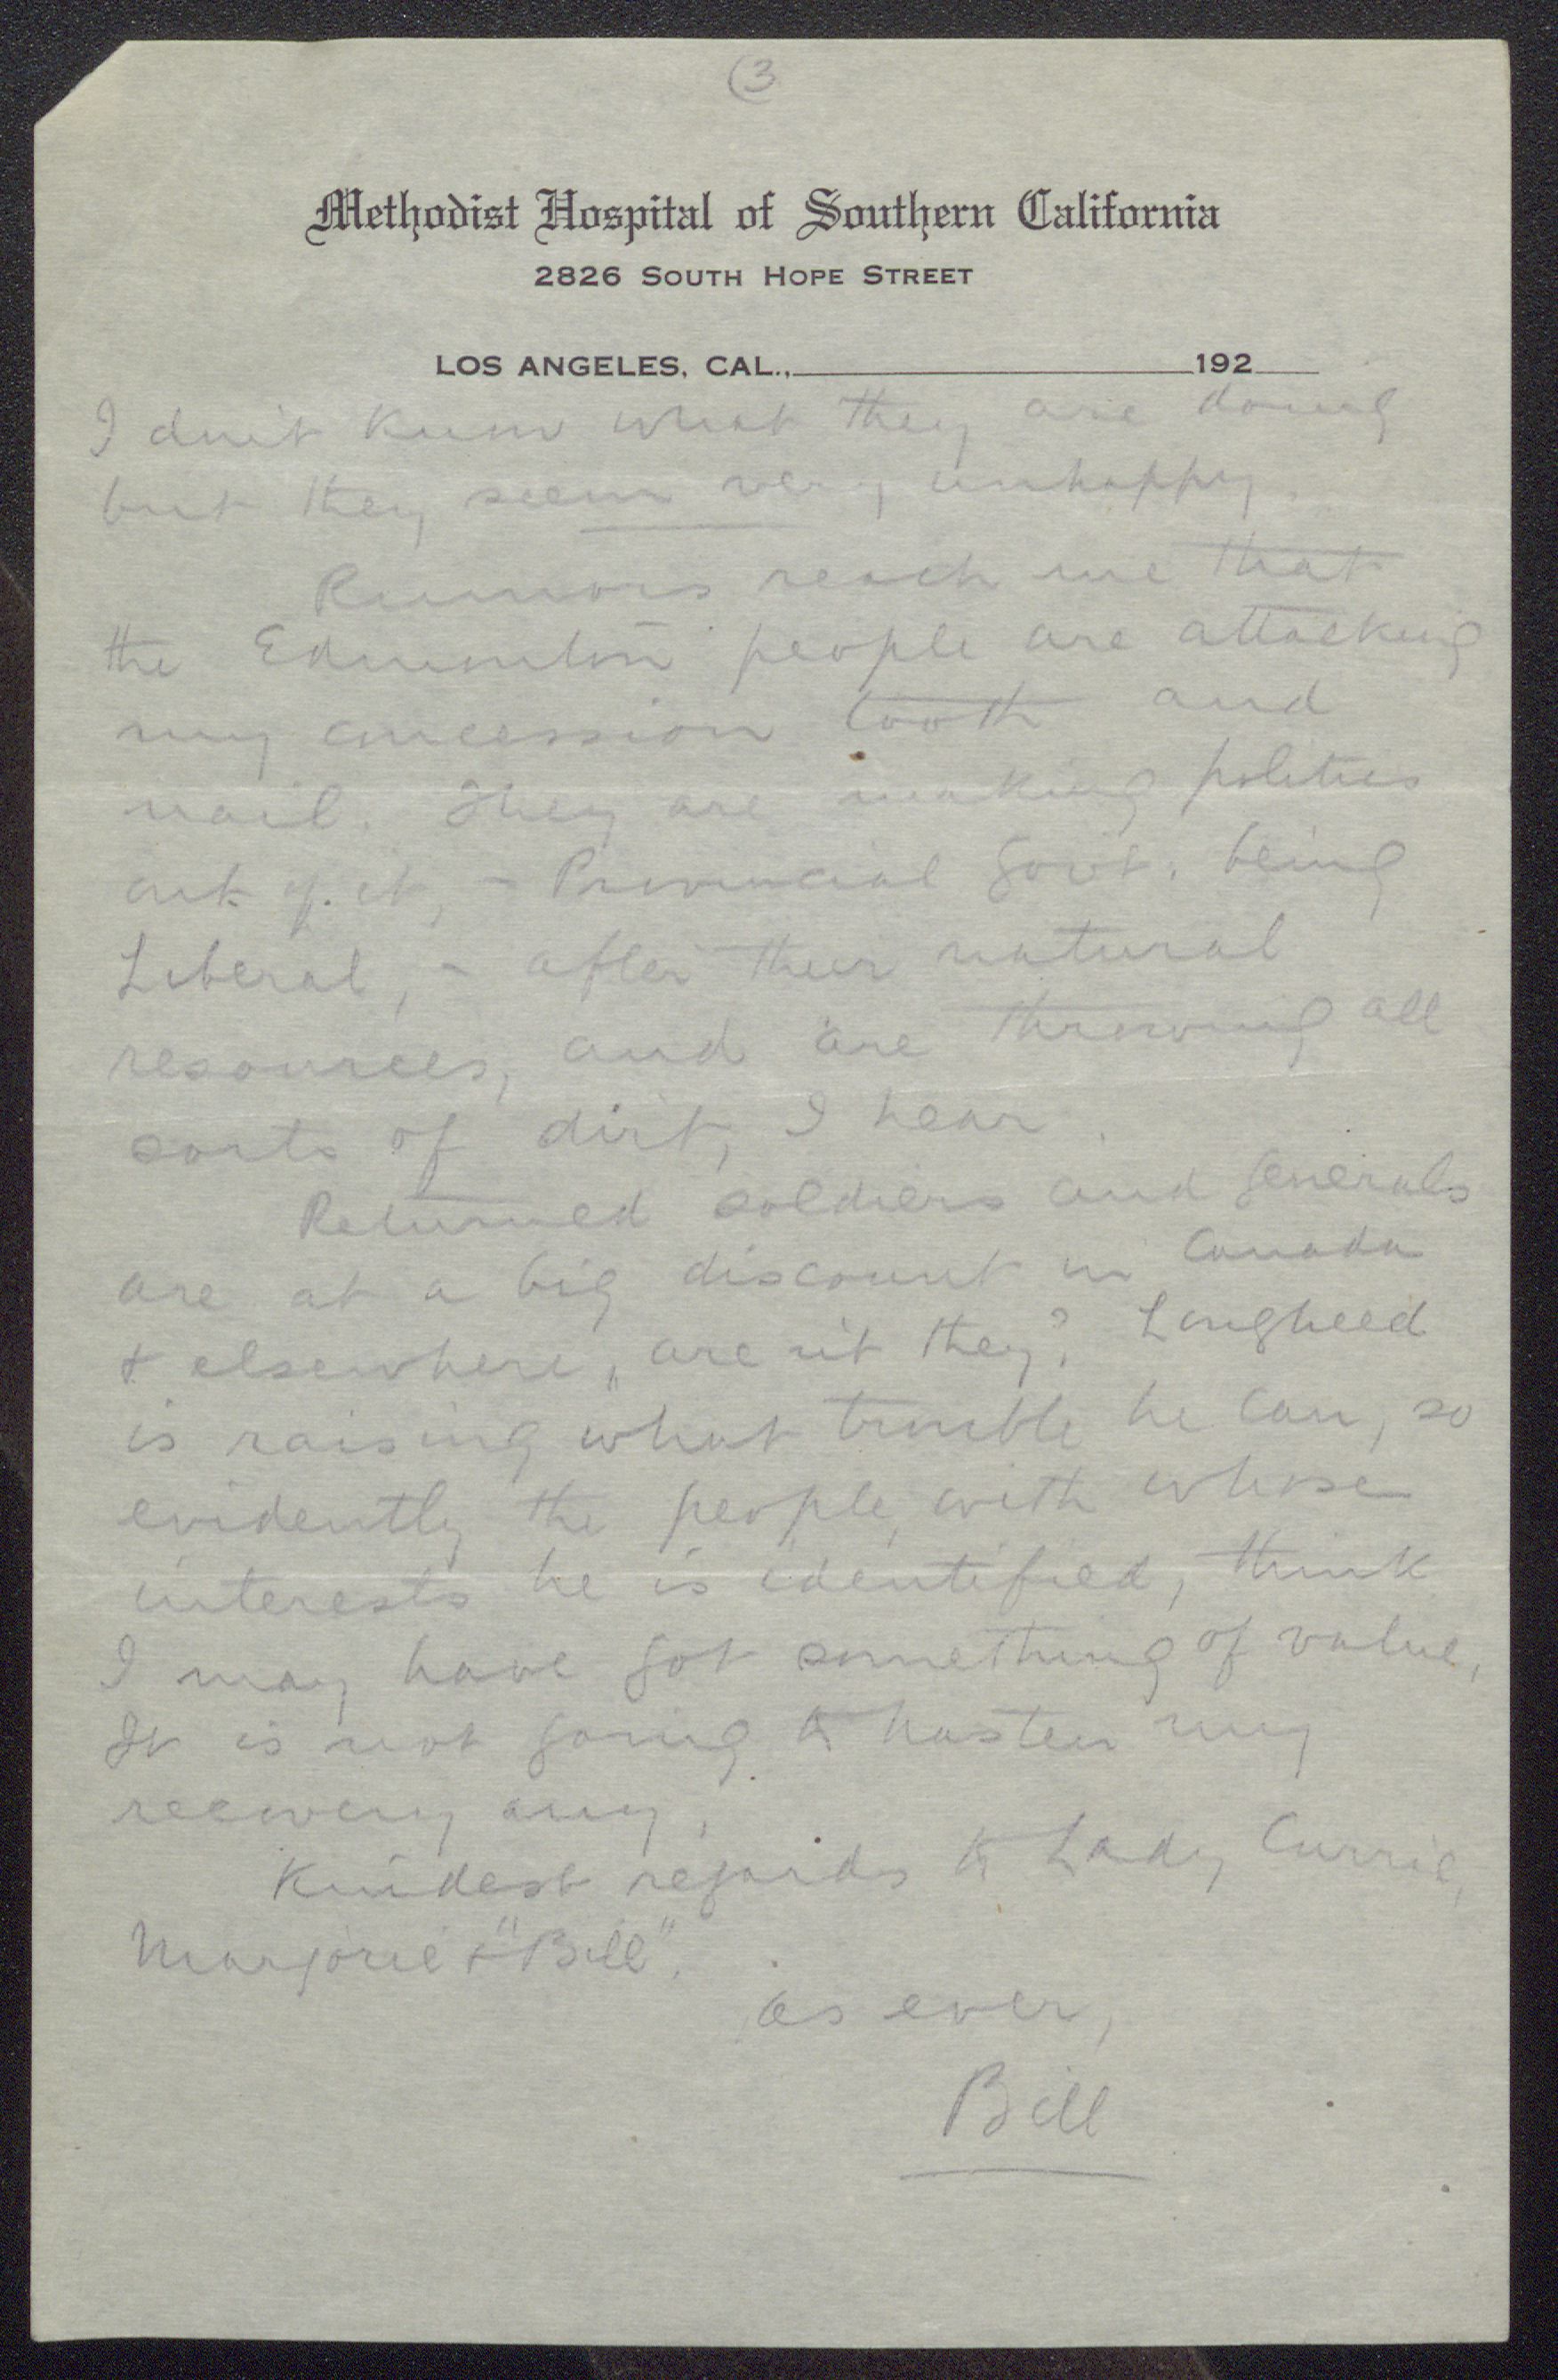 (3
Methodist Hospital of Southern California
2826 SOUTH HOPE STREET
LOS ANGELES, CAL., 192
I don't know what they are doing
but they seem very unhappy.
Rumors reach me that
the Edmonton people are attacking
my concession tooth and
nail. They are making politics
out of it, - Provincial Govt. being
Liberal, - after their natural
resources, and are throwing all
sorts of dirt, I hear.
Returned soldiers and Generals
are at a big discount in Canada
& elsewhere, are n't they? Lougheed
is raising what trouble he can, so
evidently the people, with whose
interests he is identified, think
I may have got something of value.
It is not going to hasten my
recovery any.
Kindest regards to Lady Currie,
Marjorie & "Bill".
As ever,
Bill